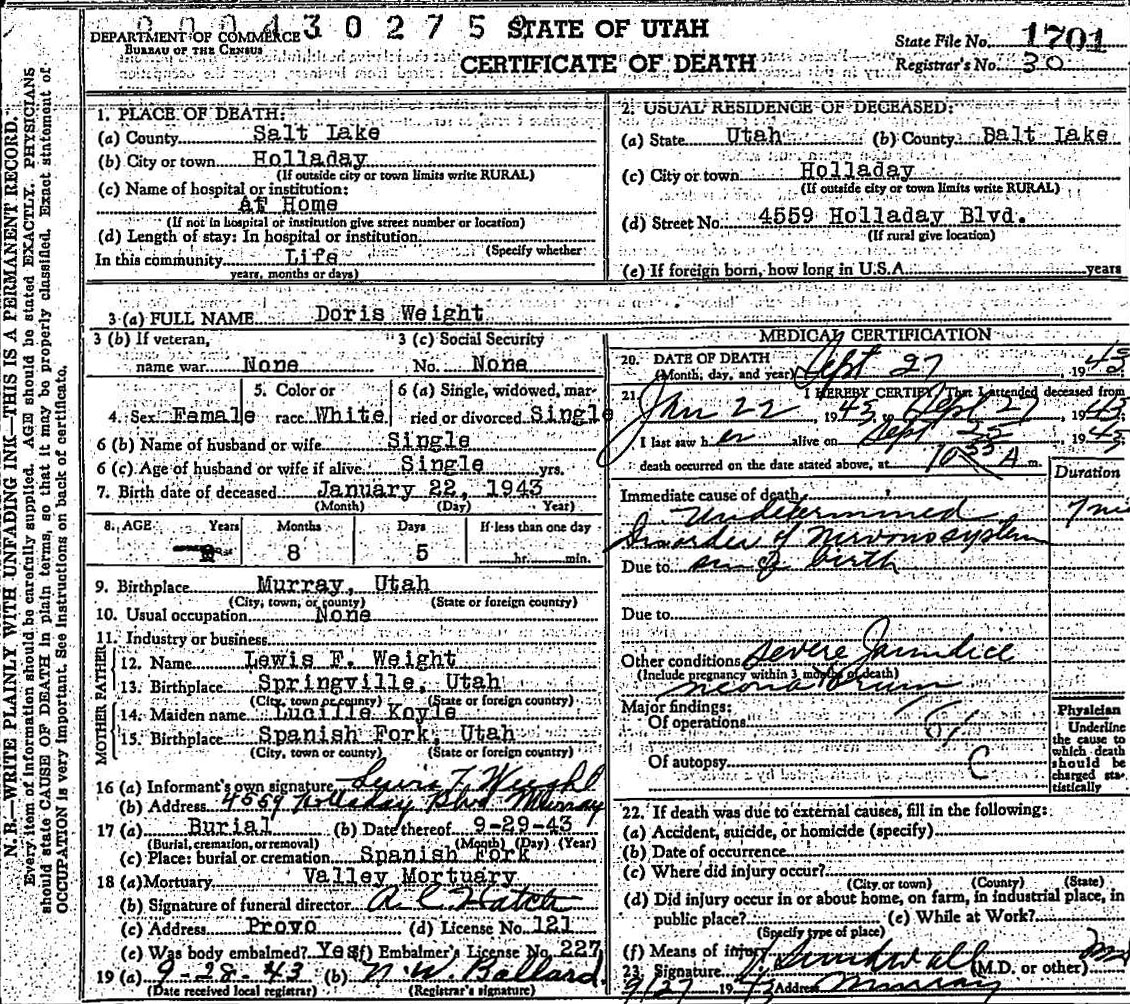 0004302759
DEPARTMENT OF COMMERCE
BUREAU OF THE CENSUS
STATE OF UTAH
CERTIFICATE OF DEATH
State File No. 1701
Registrar's No. 30
N. B.—WRITE PLAINLY WITH UNFADING INK—THIS IS A PERMANENT RECORD.
Every item of information should be carefully supplied. AGE should be stated EXACTLY. PHYSICIANS
should state CAUSE OF DEATH in plain terms, so that it may be properly classified. Exact statement of
OCCUPATION is very important. See instructions on back of certificate.
1. PLACE OF DEATH:
(a) County Salt Lake
(b) City or town Holladay
(If outside city or town limits write RURAL)
(c) Name of hospital or institution:
At Home
(If not in hospital or institution give street number or location)
(d) Length of stay: In hospital or institution
(Specify whether
In this community Life
years, months or days)
2. USUAL RESIDENCE OF DECEASED:
(a) State Utah (b) County Salt Lake
(c) City or town Holladay
(If outside city or town limits write RURAL)
(d) Street No. 4559 Holladay Blvd.
(If rural give location)
(e) If foreign born, how long in U.S.A. years
3 (a) FULL NAME Doris Weight
3 (b) If veteran, 3 (c) Social Security
name war None No. None
5. Color or 6 (a) Single, widowed, mar-
4. Sex Female race White ried or divorced Single
6 (b) Name of husband or wife Single
6 (c) Age of husband or wife if alive Single yrs.
7. Birth date of deceased January 22, 1943
(Month) (Day) Year)
8. AGE Years Months Days If less than one day
8 5 hr. min.
9. Birthplace Murray, Utah
(City, town, or county) (State or foreign country)
10. Usual occupation None
11. Industry or business
FATHER
12. Name Lewis F. Weight
13. Birthplace Springville, Utah
(City, town or county) (State or foreign country)
MOTHER
14. Maiden name Lucille Koyle
15. Birthplace Spanish Fork, Utah
(City, town or county) (State or foreign country)
16 (a) Informant's own signature Lewis F Weight
(b) Address 4559 Holladay Blvd Murray
17 (a) Burial (b) Date thereof 9-29-43
(Burial, cremation, or removal) (Month) (Day) (Year)
(c) Place: burial or cremation Spanish Fork
18 (a) Mortuary Valley Mortuary
(b) Signature of funeral director A C Hatch
(c) Address Provo (d) License No. 121
(e) Was body embalmed? Yes (f) Embalmer's License No. 227
19 (a) 9-28-43 (b) N. W. Ballard.
(Date received local registrar) (Registrar's signature)
MEDICAL CERTIFICATION
20. DATE OF DEATH
(Month, day, and year) Sept 27 1943
21. I HEREBY CERTIFY, That I attended deceased from
Jan 22, 1943, to Sept 27, 1943
I last saw her alive on Sept 22, 1943
death occurred on the date stated above, at 10 35 A m.
Duration
Immediate cause of death
Undetermined
Disorder of Nervous system
Due to birth
Due to
Other conditions Severe Jaundice
(Include pregnancy within 3 months of death)
neonatorum
Major findings:
Of operations
Of autopsy
Physician
Underline
the cause to
which death
should be
charged sta-
tistically
22. If death was due to external causes, fill in the following:
(a) Accident, suicide, or homicide (specify)
(b) Date of occurrence
(c) Where did injury occur?
(City or town) (County) (State)
(d) Did injury occur in or about home, on farm, in industrial place, in
public place? (e) While at Work?
(Specify type of place)
(f) Means of injury
23. Signature Sundwall (M.D. or other) MD
9/27 1943 Address Murray